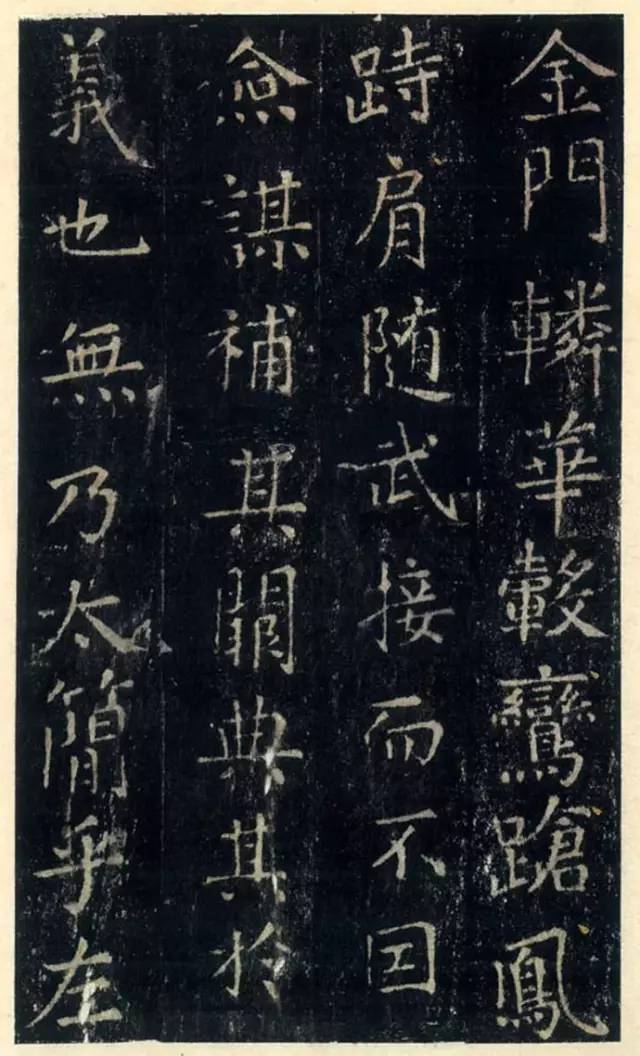 金門轔華轂鸞蹌鳳
跱肩随武接而不囙
僉謀補其闕典其扵
義也無乃太簡乎左